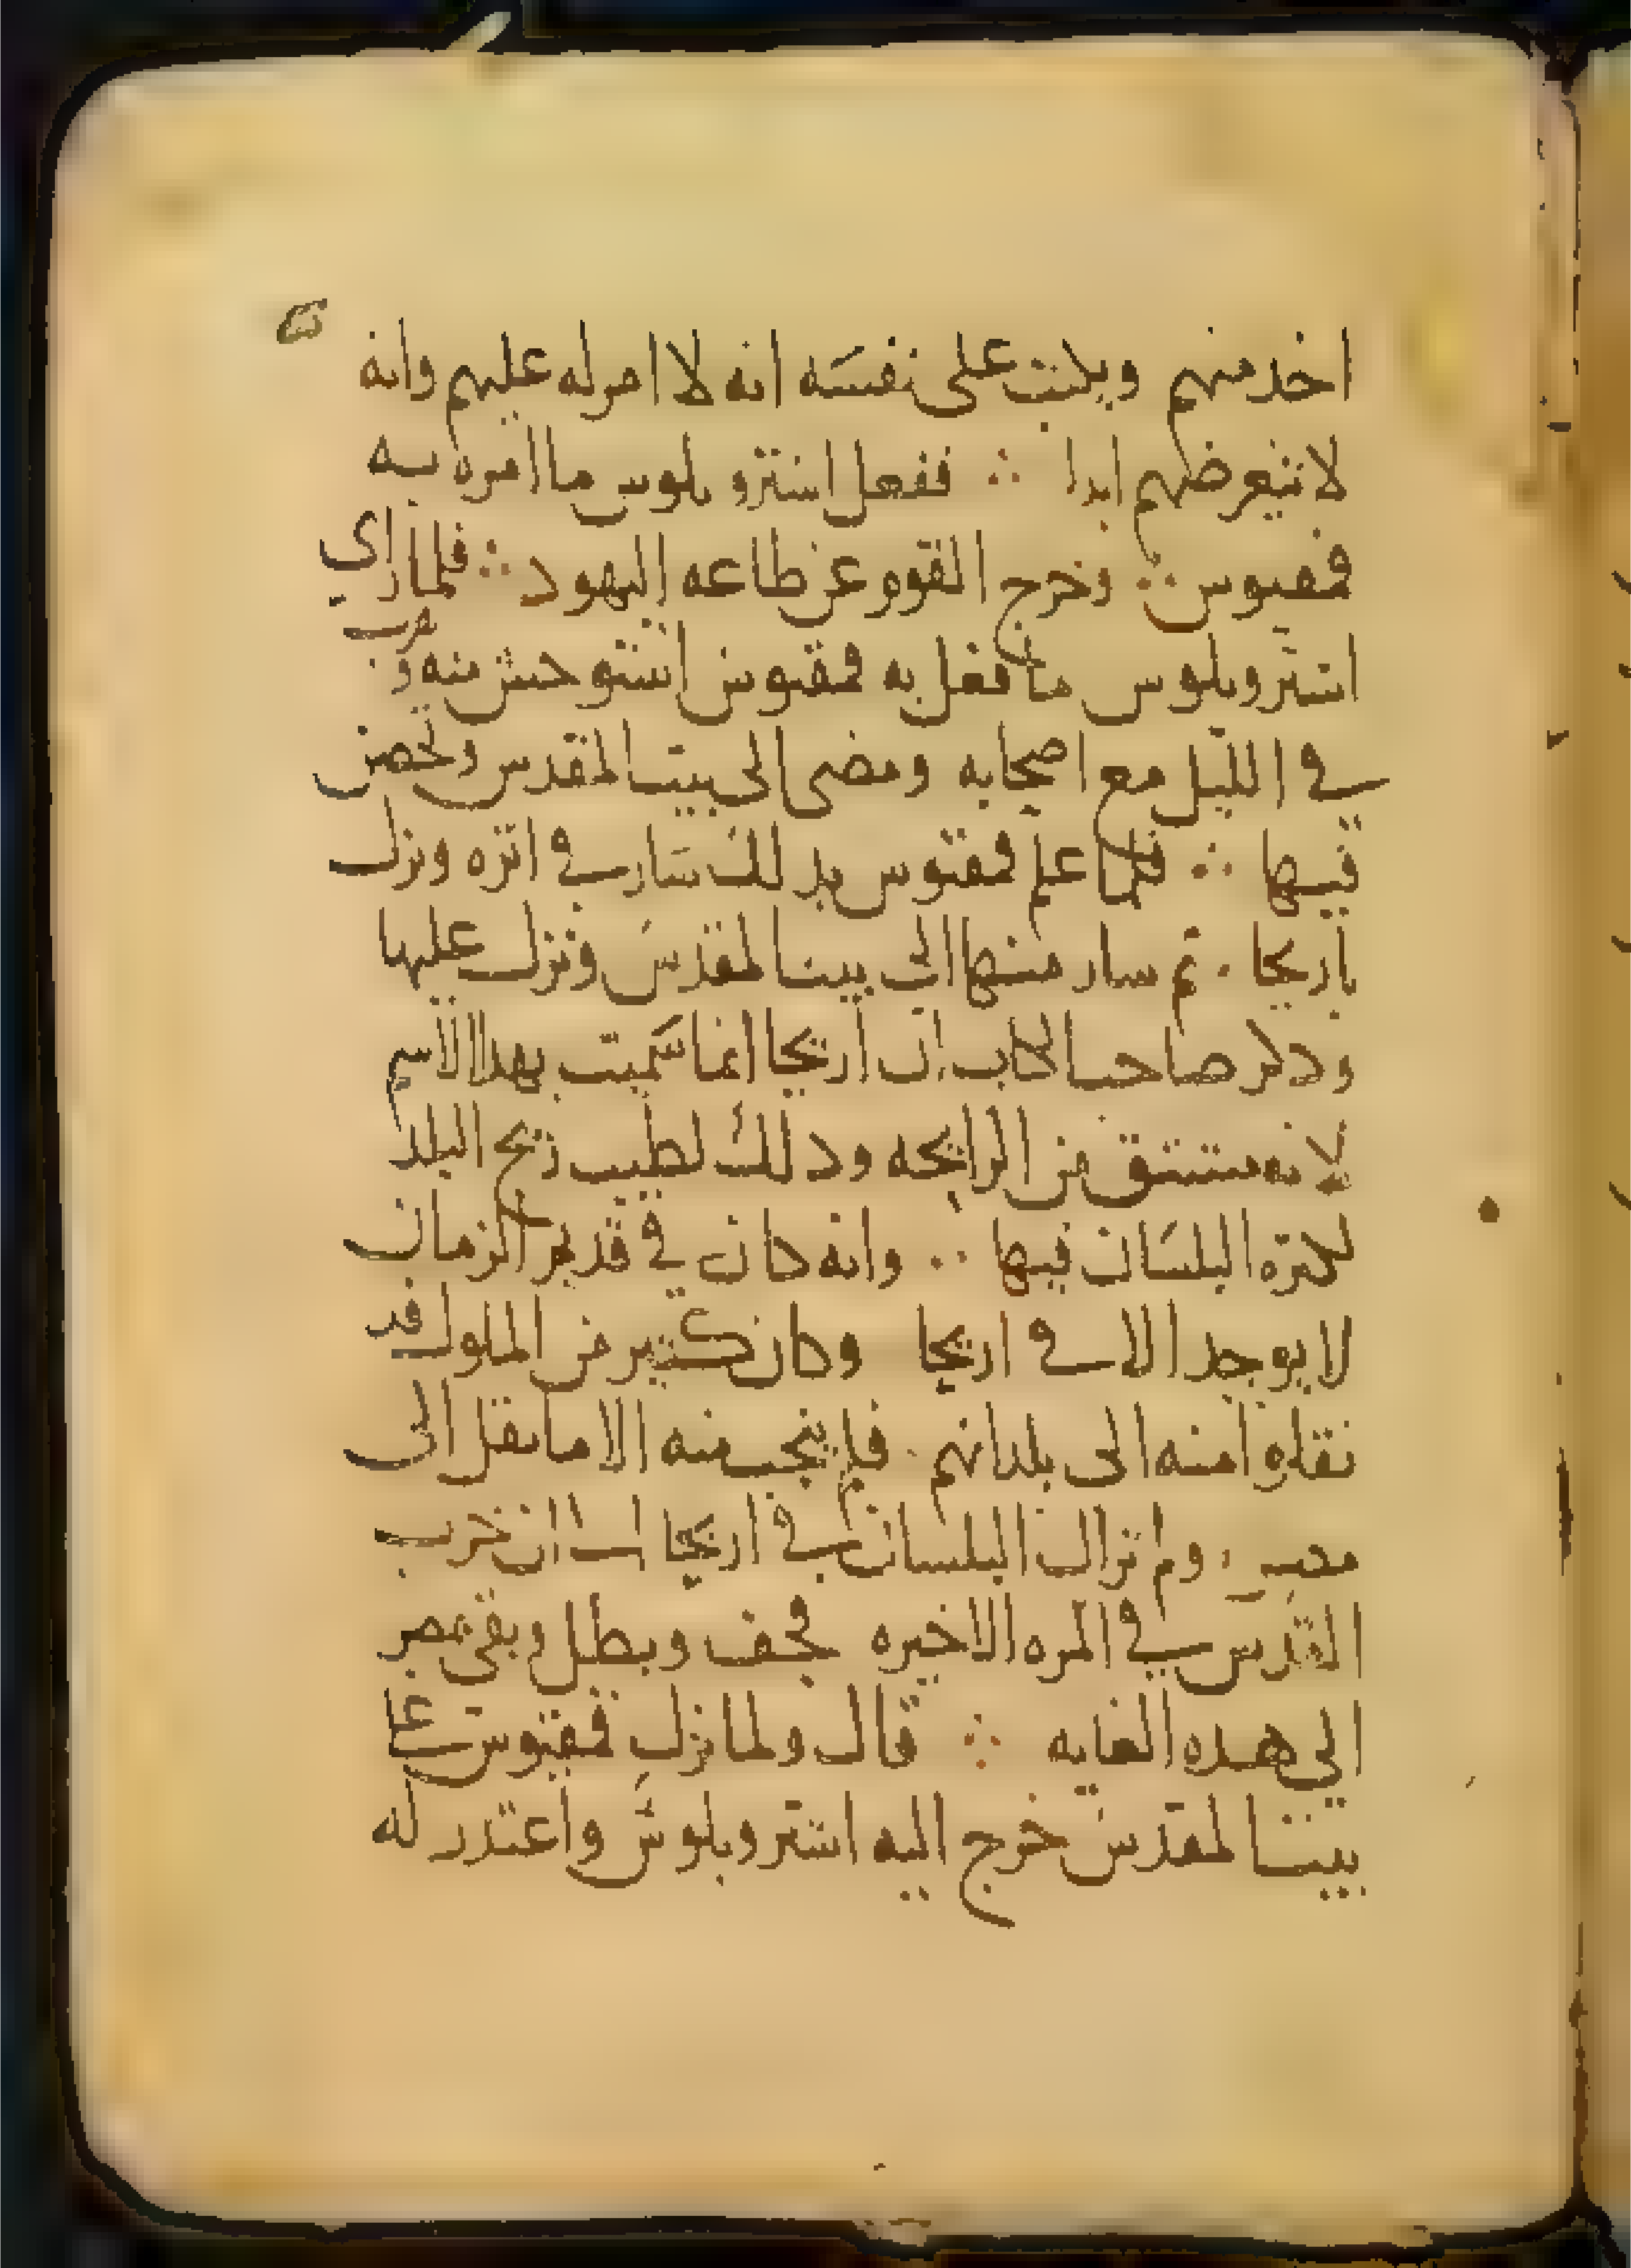 اخد منهم ويكتب على نفسه انه لا امر له عليهم وانه
لا يتعرضهم ابدا ∴ ففعل استروبلوس ما امره به
فمقيوس ∴ وخرج القوم عن طاعه اليهود ∴ فلما راى
استروبلوس ما فعل به فمقيوس استوحش منه وهرب
في الليل مع اصحابه ومضى الى بيت المقدس وتحصن
فيها ∴ فلما علم فمقيوس بدلك سار في اتره ونزل
باريحا . تم سار منها الى بيت المقدس ونزل عليها
ودكر صاحب الكتاب ان اريحا انما سميت بهدا الاسم
لانه مشتق من الرايحه ودلك لطيب ريح البلد
لكترة البلسان فيها .. وانه كان في قديم الزمان
لا يوجد الا في اريحا وكان كتير من الملوك قد
نقلوا منه الى بلدانهم . فلم ينجب منه الا ما نقل الى
مصر . ولم تزال البلسان في اريحا الى ان خرب
القدس في المره الاخيره فجف وبطل وبقى بمصر
الي هده الغايه ∴ قال ولما نزل فمقيوس على
بيت المقدس خرج اليه استروبلوس واعتدر له